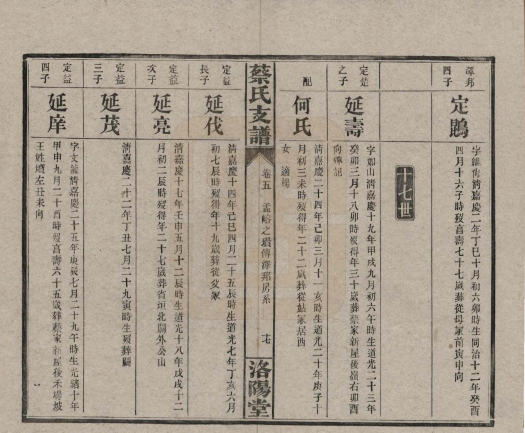 澤邦
四子
定鵬
字鵾海清嘉慶二年丁巳十月初六卯時生同治十二年癸酉
四月十六子時歿高壽七十七歲葬從母冢前寅申向
十七世
定楚
之子
延壽
字如山清嘉慶十九年甲戌九月初六午時生道光二十三年
癸卯三月十八卯時歿得年三十歲葬蔡家新屋後嶺右卯酉
向碑記
配
何氏
清嘉慶二十四年己卯三月十一亥時生道光二十年庚子十
月初三未時歿得年二十二歲葬從姑冢居酉
女一適楊
蔡氏支譜
卷五
孟峪之瓚傳澤邦房系
十七
洛陽堂
定益
長子
延伐
清嘉慶十四年己巳四月二十五辰時生道光七年丁亥六月
初七辰時歿得年十九歲葬從父冢
定益
次子
延亮
清嘉慶十七年壬申五月十二辰時生道光十八年戊戌十二
月初二辰時歿得年二十七歲葬省垣北關外公山
定益
三子
延茂
清嘉慶二十二年丁丑七月二十九寅時生歿葬闕
定益
四子
延庠
字文瀧清嘉慶二十五年庚辰七月二十九寅時生光緒十年
甲申九月二十酉時歿高壽六十五歲葬蔡家新屋後禾場坡
王姓墳左丑未向